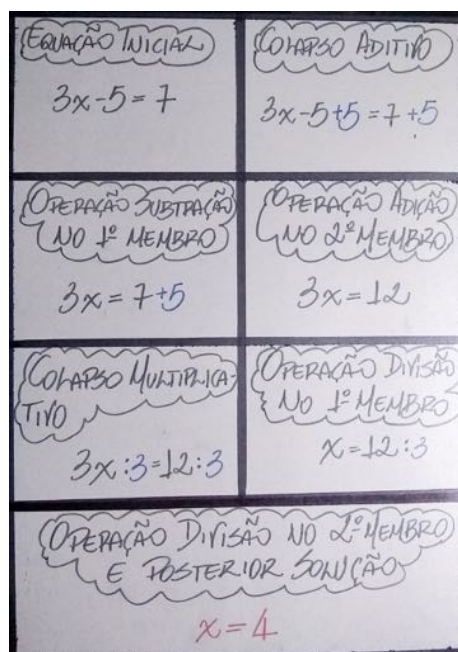 EQUAÇÃO INICIAL
3x-5=7
COLAPSO ADITIVO
3x-5+5=7+5
OPERAÇÃO SUBTRAÇÃO
NO 1º MEMBRO
3x=7+5
OPERAÇÃO ADIÇÃO
NO 2º MEMBRO
3x=12
COLAPSO MULTIPLICA-
TIVO
3x:3=12:3
OPERAÇÃO DIVISÃO
NO 1º MEMBRO
x=12:3
OPERAÇÃO DIVISÃO NO 2º MEMBRO
E POSTERIOR SOLUÇÃO
x=4